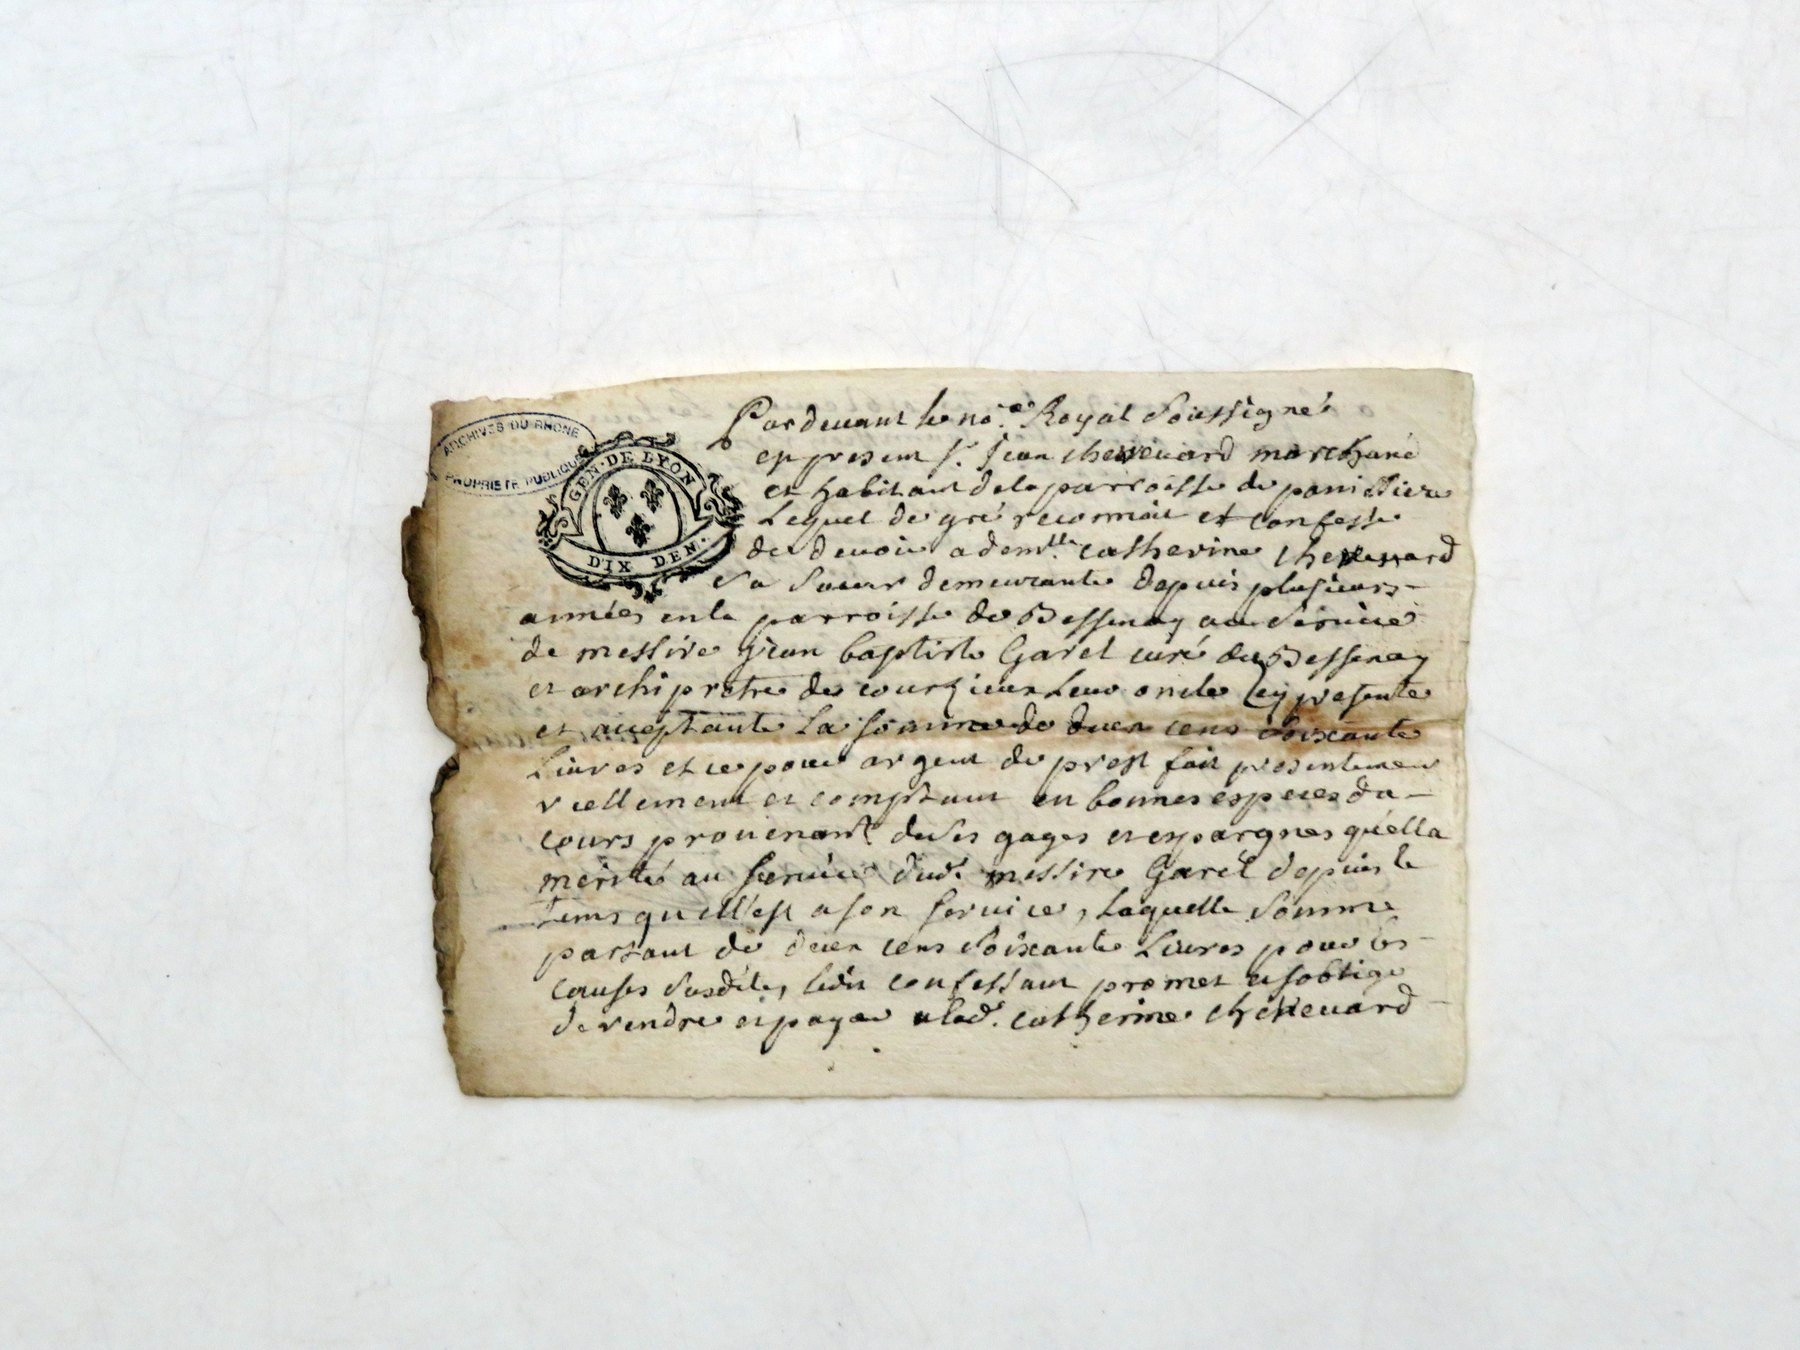 ARCHIVES DU RHONE
PROPRIETE PUBLIQUE
GEN. DE LYON
DIX DEN.
Pardevant le no.re Royal Soussigné
est present Sr. Jean chevenard marchand
et habitant de la parroisse de panissiere
Lequel de gré reconnoit et confesse
de devoir a demlle. catherine chevenard
Sa Soeur demeurante depuis plusieurs
années en la parroisse de Bessenay au Service
de messire jean baptiste Garel curé de Bessenay
et archipretre de courzieux Leur oncle cy presente
et acceptante La somme de deux cens Soixante
Livres et ce pour argent de prest fait presentement
reellement et comptant en bonnes especes du
cours provenant de ses gages et epargnes quella
merité au service dud. messire Garel depuis le
tems quell'est a son service, Laquelle Somme
partant de deux cens Soixante Livres pour les
causes Susdites, ledit confessant promet et soblige
de rendre et payer a lad. catherine chevenard